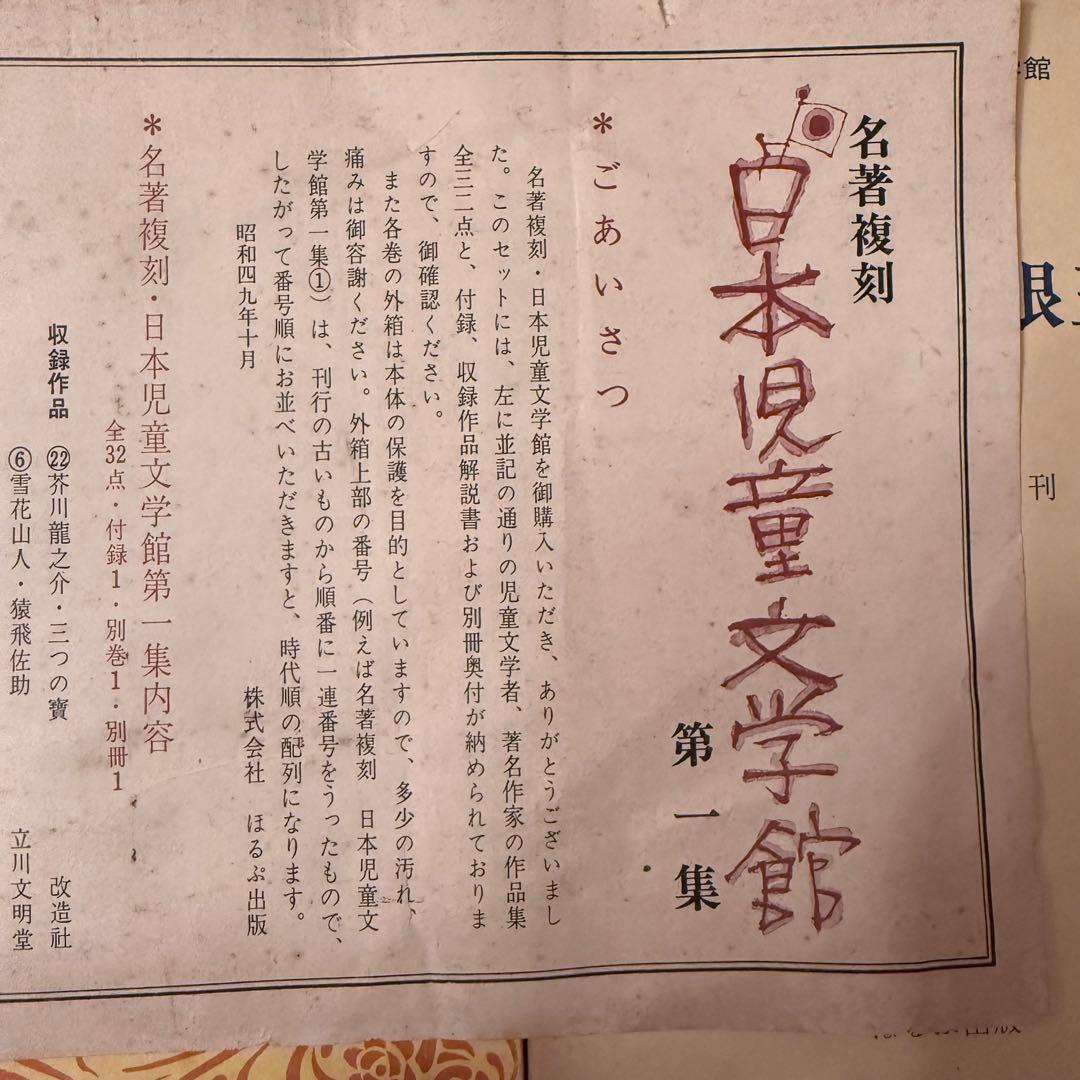 名著複刻
日本児童文学館
第一集
＊ごあいさつ
名著複刻・日本児童文学館を御購入いただき、ありがとうございまし
た。このセットには、左に並記の通りの児童文学者、著名作家の作品集
全三二点と、付録、収録作品解説書および別冊奥付が納められておりま
すので、御確認ください。
また各巻の外箱は本体の保護を目的としていますので、多少の汚れ、
痛みは御容謝ください。外箱上部の番号（例えば名著複刻　日本児童文
学館第一集①）は、刊行の古いものから順番に一連番号をうったもので、
したがって番号順にお並べいただきますと、時代順の配列になります。
昭和四九年十月
株式会社　ほるぷ出版
＊名著複刻・日本児童文学館第一集内容
全32点・付録1・別巻1・別冊1
収録作品　㉒芥川龍之介・三つの寶　改造社
⑥雪花山人・猿飛佐助　立川文明堂
館
刊